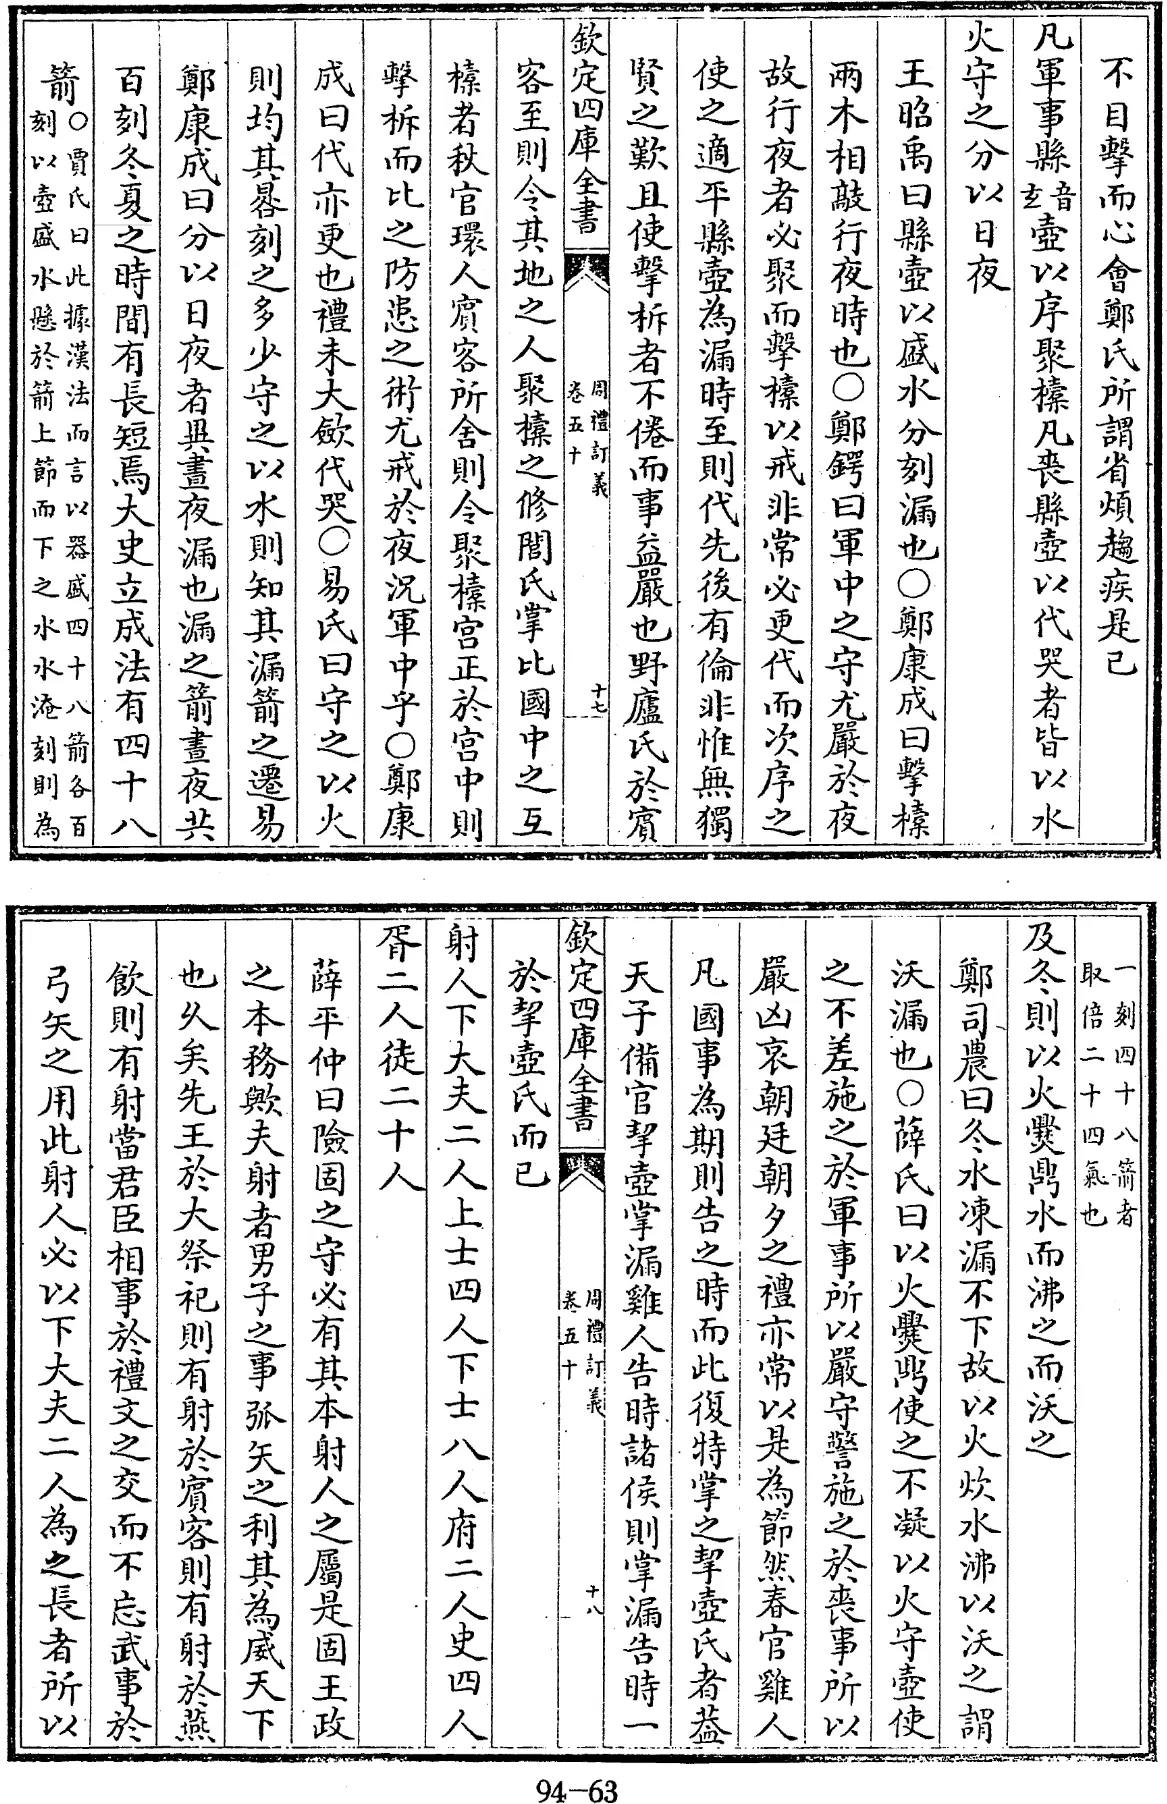 不目擊而心會鄭氏所謂省煩趨疾是已
凡軍事縣音玄壺以序聚㯓凡喪縣壺以代哭者皆以水
火守之分以日夜
王昭禹曰縣壺以盛水分刻漏也○鄭康成曰擊㯓
兩木相敲行夜時也○鄭鍔曰軍中之守尤嚴於夜
故行夜者必聚而擊㯓以戒非常必更代而次序之
使之適平縣壺為漏時至則代先後有倫非惟無獨
賢之歎且使擊柝者不倦而事益嚴也野廬氏於賓
欽定四庫全書
周禮訂義
卷五十
十七
客至則令其地之人聚㯓之修閭氏掌比國中之互
㯓者秋官環人賓客所舍則令聚㯓宮正於宮中則
擊柝而比之防患之術尤戒於夜況軍中乎○鄭康
成曰代亦更也禮未大斂代哭○易氏曰守之以火
則均其晷刻之多少守之以水則知其漏箭之遷易
鄭康成曰分以日夜者異晝夜漏也漏之箭晝夜共
百刻冬夏之時間有長短焉大史立成法有四十八
箭○賈氏曰此據漢法而言以器盛四十八箭各百
刻以壺盛水懸於箭上節而下之水水淹刻則為
一刻四十八箭者
取倍二十四氣也
及冬則以火爨鼎水而沸之而沃之
鄭司農曰冬水凍漏不下故以火炊水沸以沃之謂
沃漏也○薛氏曰以火爨鼎使之不凝以火守壺使
之不差施之於軍事所以嚴守警施之於喪事所以
嚴凶哀朝廷朝夕之禮亦常以是為節然春官雞人
凡國事為期則告之時而此復特掌之挈壺氏者葢
天子備官挈壺掌漏雞人告時諸侯則掌漏告時一
欽定四庫全書
周禮訂義
卷五十
十八
於挈壺氏而已
射人下大夫二人上士四人下士八人府二人史四人
胥二人徒二十人
薛平仲曰險固之守必有其本射人之屬是固王政
之本務歟夫射者男子之事弧矢之利其為威天下
也久矣先王於大祭祀則有射於賓客則有射於燕
飲則有射當君臣相事於禮文之交而不忘武事於
弓矢之用此射人必以下大夫二人為之長者所以
94-63